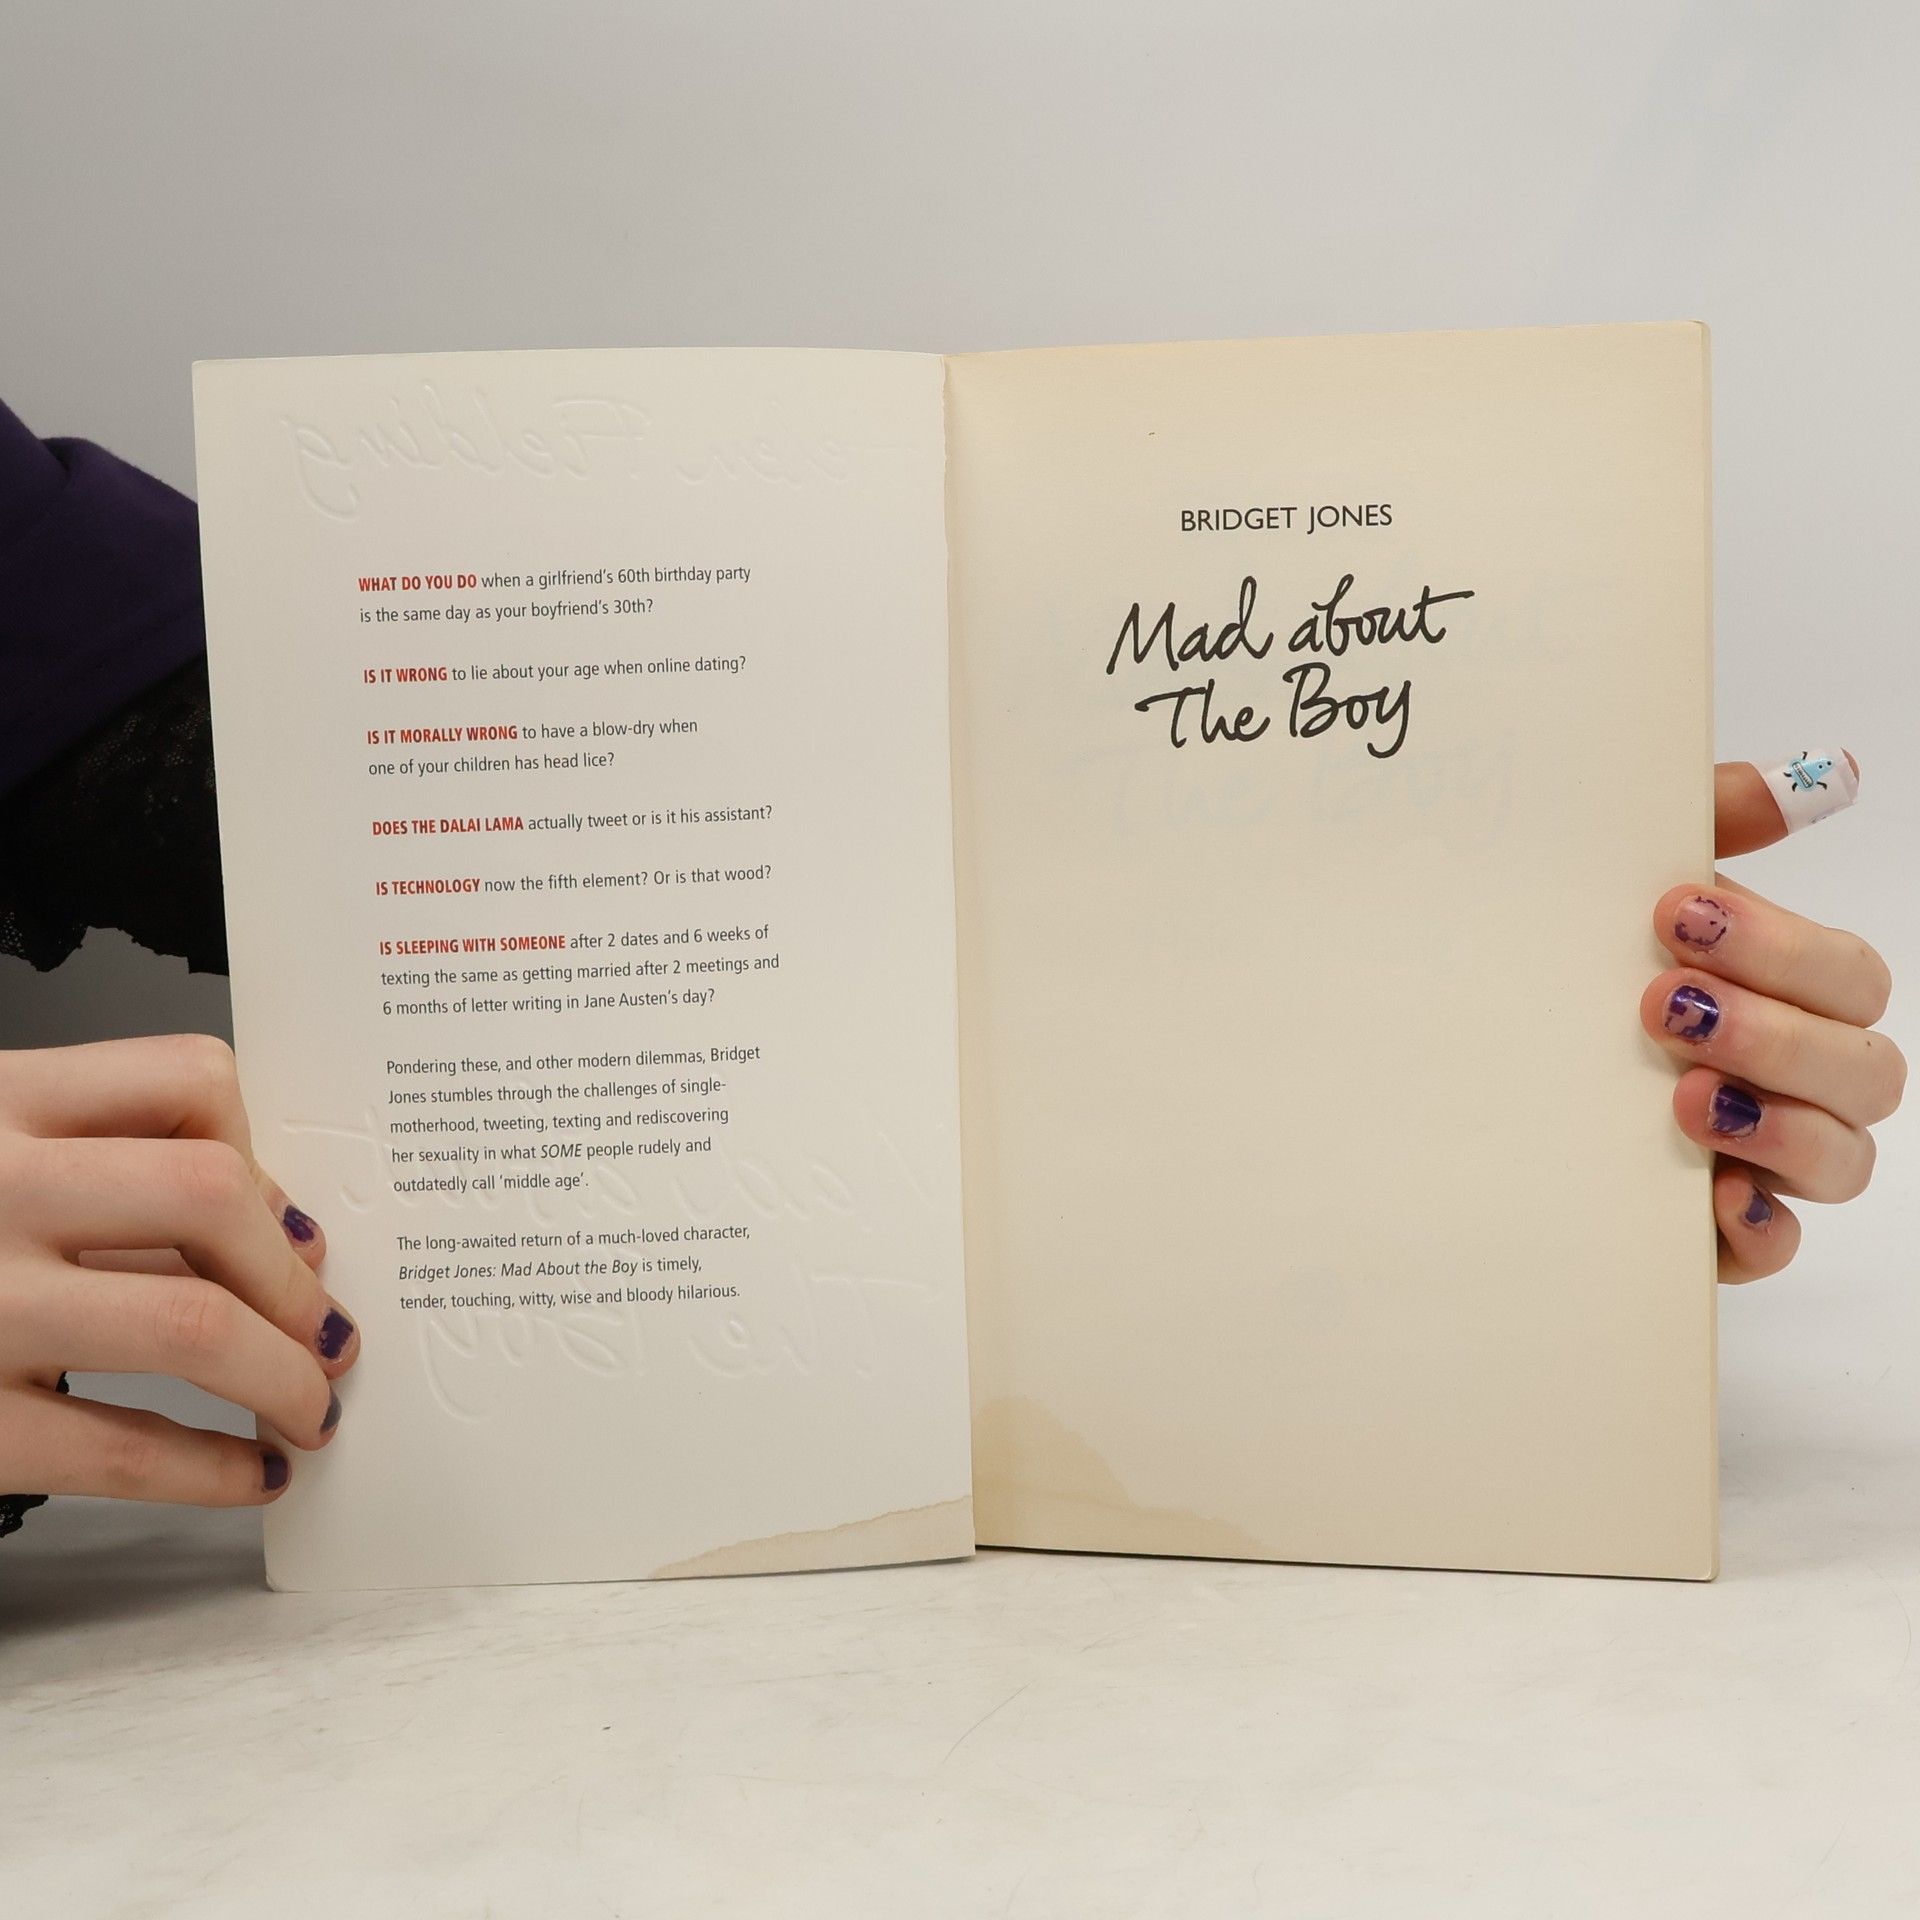 Helen Fielding
WHAT DO YOU DO when a girlfriend's 60th birthday party
is the same day as your boyfriend's 30th?
IS IT WRONG to lie about your age when online dating?
IS IT MORALLY WRONG to have a blow-dry when
one of your children has head lice?
DOES THE DALAI LAMA actually tweet or is it his assistant?
IS TECHNOLOGY now the fifth element? Or is that wood?
IS SLEEPING WITH SOMEONE after 2 dates and 6 weeks of
texting the same as getting married after 2 meetings and
6 months of letter writing in Jane Austen's day?
Pondering these, and other modern dilemmas, Bridget
Jones stumbles through the challenges of single-
motherhood, tweeting, texting and rediscovering
her sexuality in what SOME people rudely and
outdatedly call 'middle age'.
The long-awaited return of a much-loved character,
Bridget Jones: Mad About the Boy is timely,
tender, touching, witty, wise and bloody hilarious.
Mad about
The Boy
BRIDGET JONES
Mad about
The Boy